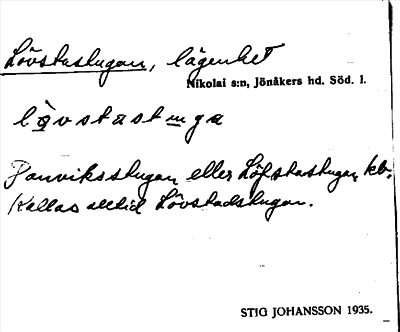 Lövstastugan, lägenhet
Nikolai s:n, Jönåkers hd. Söd. l.
lövstastuga
Panviksstugan eller Löfstastugan kb.
Kallas alltid Lövstadstugan.
STIG JOHANSSON 1935.